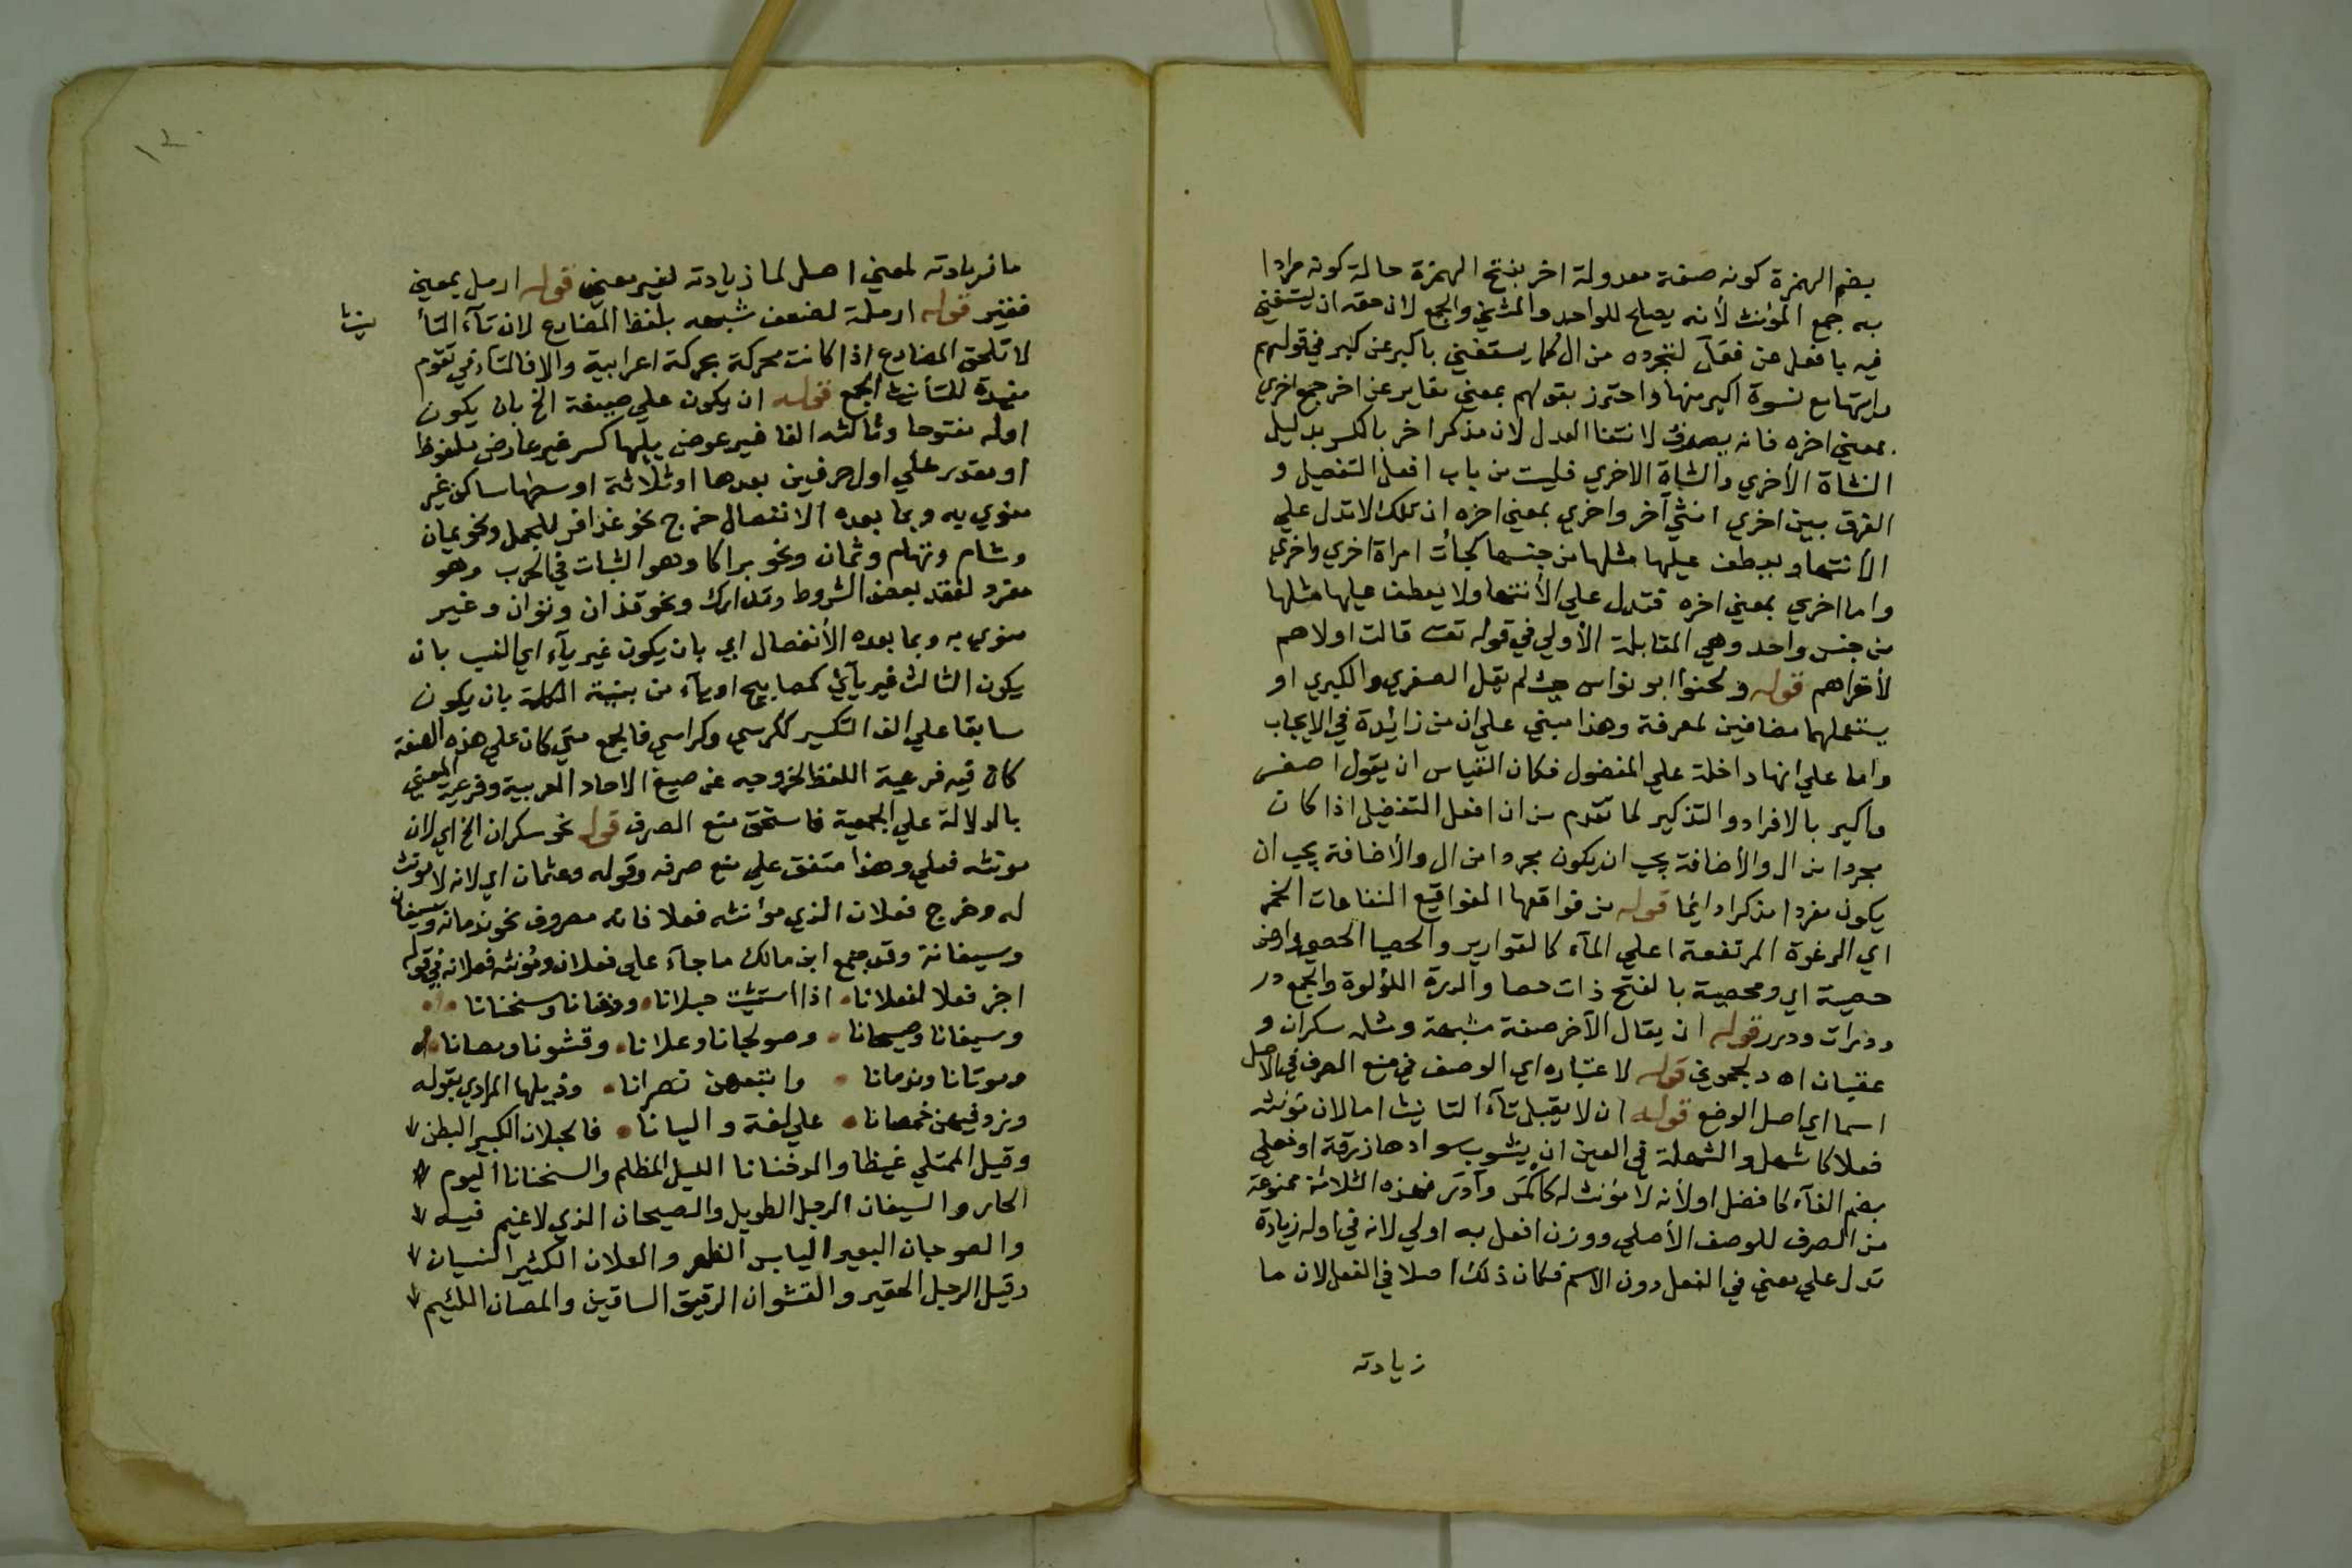 بضم الهمزة كونه صفة معدولة اخر بفتح الهمزة حالة كونه مرادا
به جمع المؤنث لأنه يصلح للواحد والمثني والجمع لان حقه ان يستغني
فيه بافعل عن فعل لتجرده من ال كما يستغني باكبر عن كبر في قولهم
رايتها مع نسوة اكبر منها واحترز بقولهم بمعني مغاير عن اخر جمع اخري
بمعني اخره فانه يصرف لانتفا العدل لان مذكرا اخر بالكسر بدليل
النشاة الأخري والنشاة الاخري فليست من باب افعل التفضيل و
الفرق بين اخري انثي آخر واخري بمعني اخره ان تلك لا تدل علي
الأنتها ويعطف عيلها مثلها من جنسها كجأت امراة اخري واخري
واما اخري بمعني اخره فتدل علي الأنتها ولا يعطف عيلها مثلها
من جنس واحد وهي المقابلة الأولي في قوله تعـ قالت اولاهم
لأخراهم قوله ولحنوا ابو نواس حيث لم يقل الصغري والكبري او
يستعملهما مضافين لمعرفة وهذا مبني علي ان من زائدة في الايجاب
واما علي انها داخلة علي المفضول فكان القياس ان يقول اصغر
واكبر بالافراد والتذكير لما تقدم من ان افعل التفضيل اذا كان
مجردا من ال والأضافة يجب ان يكون مجردا من ال والأضافة يجب ان
يكون مفردا مذكرا دائما قوله من فواقعها الفواقيع النفاخات الخمر
اي الرغوة المرتفعة اعلي المآء كالقوارير والحصبا الحصي وارض
حصبة اي ومحصبة بالفتح ذات حصا والدرة اللؤلوة والجمع در
ودرات ودرر قوله ان يقال الآخر صفة مشبهة ومثله سكران و
عقبان اه دلجموني قوله لا عتباره اي الوصف في منع الصرف في الاصل
اسما اي اصل الوضع قوله ان لا يقبل تآء التانيث اما لان مؤنثه
فعلا كاشهل والشهلة في العين ان يشوب سوادها زرقة او فعلي
بضم الفآء كافضل اولأنه لا مؤنث له كاكمر وآدر فهذه الثلاثة ممنوعة
من الصرف للوصف الأصلي ووزن افعل به اولي لانه في اوله زيادة
تدل علي معني في الفعل دون الاسم فكان ذلك اصلا في الفعل لان ما
زيادته
ما زيادته لمعني اصل لما زيادته لغير معني قوله ارمل بمعني
فقير قوله ارملة لضعف شبهه بلفظ المضارع لان تآء التأ
نيث
لا تلحق المضارع اذا كانت محركة بحركة اعرابية والا فالتاء في تقوم
مفيدة للتأنيث الجمع قوله ان يكون علي صيغة الخ بان يكون
اوله مفتوحا وثالثه الفا غير عوض يليها كسر غير عارض ملفوظ
او مقدر علي اول حرفين بعدها او ثلاثة اوسطها ساكن غير
منوي به وبما بعده الانفصال خرج نحو عذافر للجمل ونحو يمان
وشام وتهام وثمان ونحو براكا وهو الثبات في الحرب وهو
مفرد لفقد بعض الشروط وتدارك ونحو تذان وتوان وغير
منوي به وبما بعده الأنفصال اي بان يكون غير يآء اي النسب بان
يكون الثالث غير يآئي كمصابيح او يآء من بنية الكلمة بان يكون
سابقا علي الف التكسير ككرسي وكراسي فالجمع متي كان علي هذه الصفة
كان فيه فرعية اللفظ لخروجه عن صيغ الاحاد العربية وفرعية المعني
بالدلالة علي الجمعية فاستحق منع الصرف قوله نحو سكران الخ اي لان
مونثه فعلي وهذا متفق علي منع صرفه وقوله وعثمان اي لانه لا مونث
له وخرج فعلان الذي مؤنثه فعلا فانه مصروف نحو ندمانه وسيفان
وسيفانة وقد جمع ابن مالك ما جآء علي فعلان ومؤنثه فعلانه في قوله
اجز فعلا لفعلانا اذا استثنيت حبلانا ودخنانا وسخنانا
وسيفانا وصيحانا وصولجانا وعلانا وقشونا ومصانا
وموتانا وندمانا واتبعهن نصرانا وذيلها المرادي بقوله
وزد فيهن خمصانا علي لغة واليانا فالحبلان الكبير البطن
وقيل الممتلي غيظا والدخنانا الليل المظلم والسخنانا اليوم
الحار والسيفان الرجل الطويل والصيحان الذي لا غيم فيه
والصوجان البعير اليابس الظهر والعلان الكثير النسيان
وقيل الرجل الحقير والقشوان الرقيق الساقين والمصان اللئيم